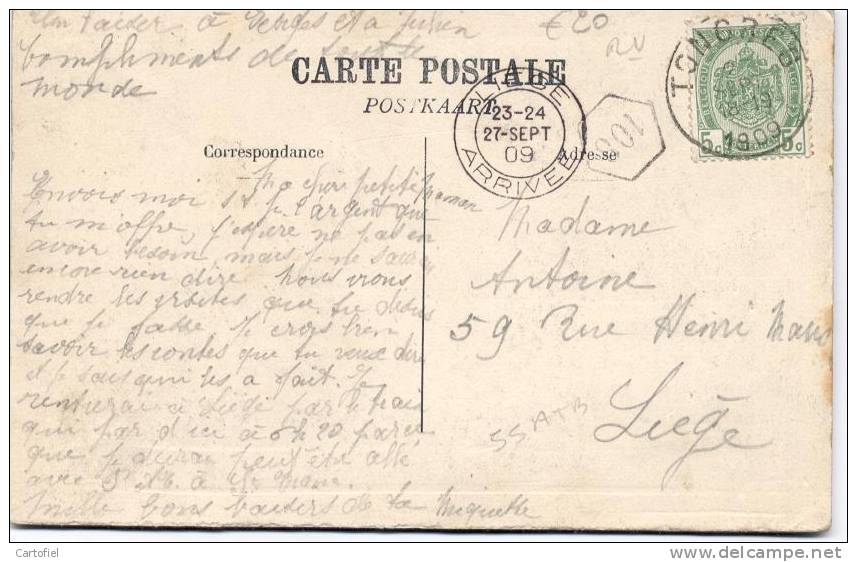 Un baiser à Georges et à Julien
Compliments de tout le
monde
€20
CARTE POSTALE
POSTKAART
Correspondance
Adresse
LIEGE
23-24
27-SEPT
09
ARRIVEE
108
TONGRES
1909
5c 5c
Ma chère petite maman
Envoie moi s.t.p. l'argent que
tu m'offre, j'espère ne pas en
avoir besoin, mais je ne
encore rien dire. Nous irons
rendre les visites que tu
que je fasse. Je crois bien
savoir les contes que tu veux dire
et je sais qui les a fait. Je
rentrerai à Liège par le train
qui part d'ici à 6h20 parce
que je peut être allé
avec à
Mille bons baisers de ta Miquette
Madame
Antoine
59 Rue Henri Maus
Liège
Cartofiel
www.delcampe.net